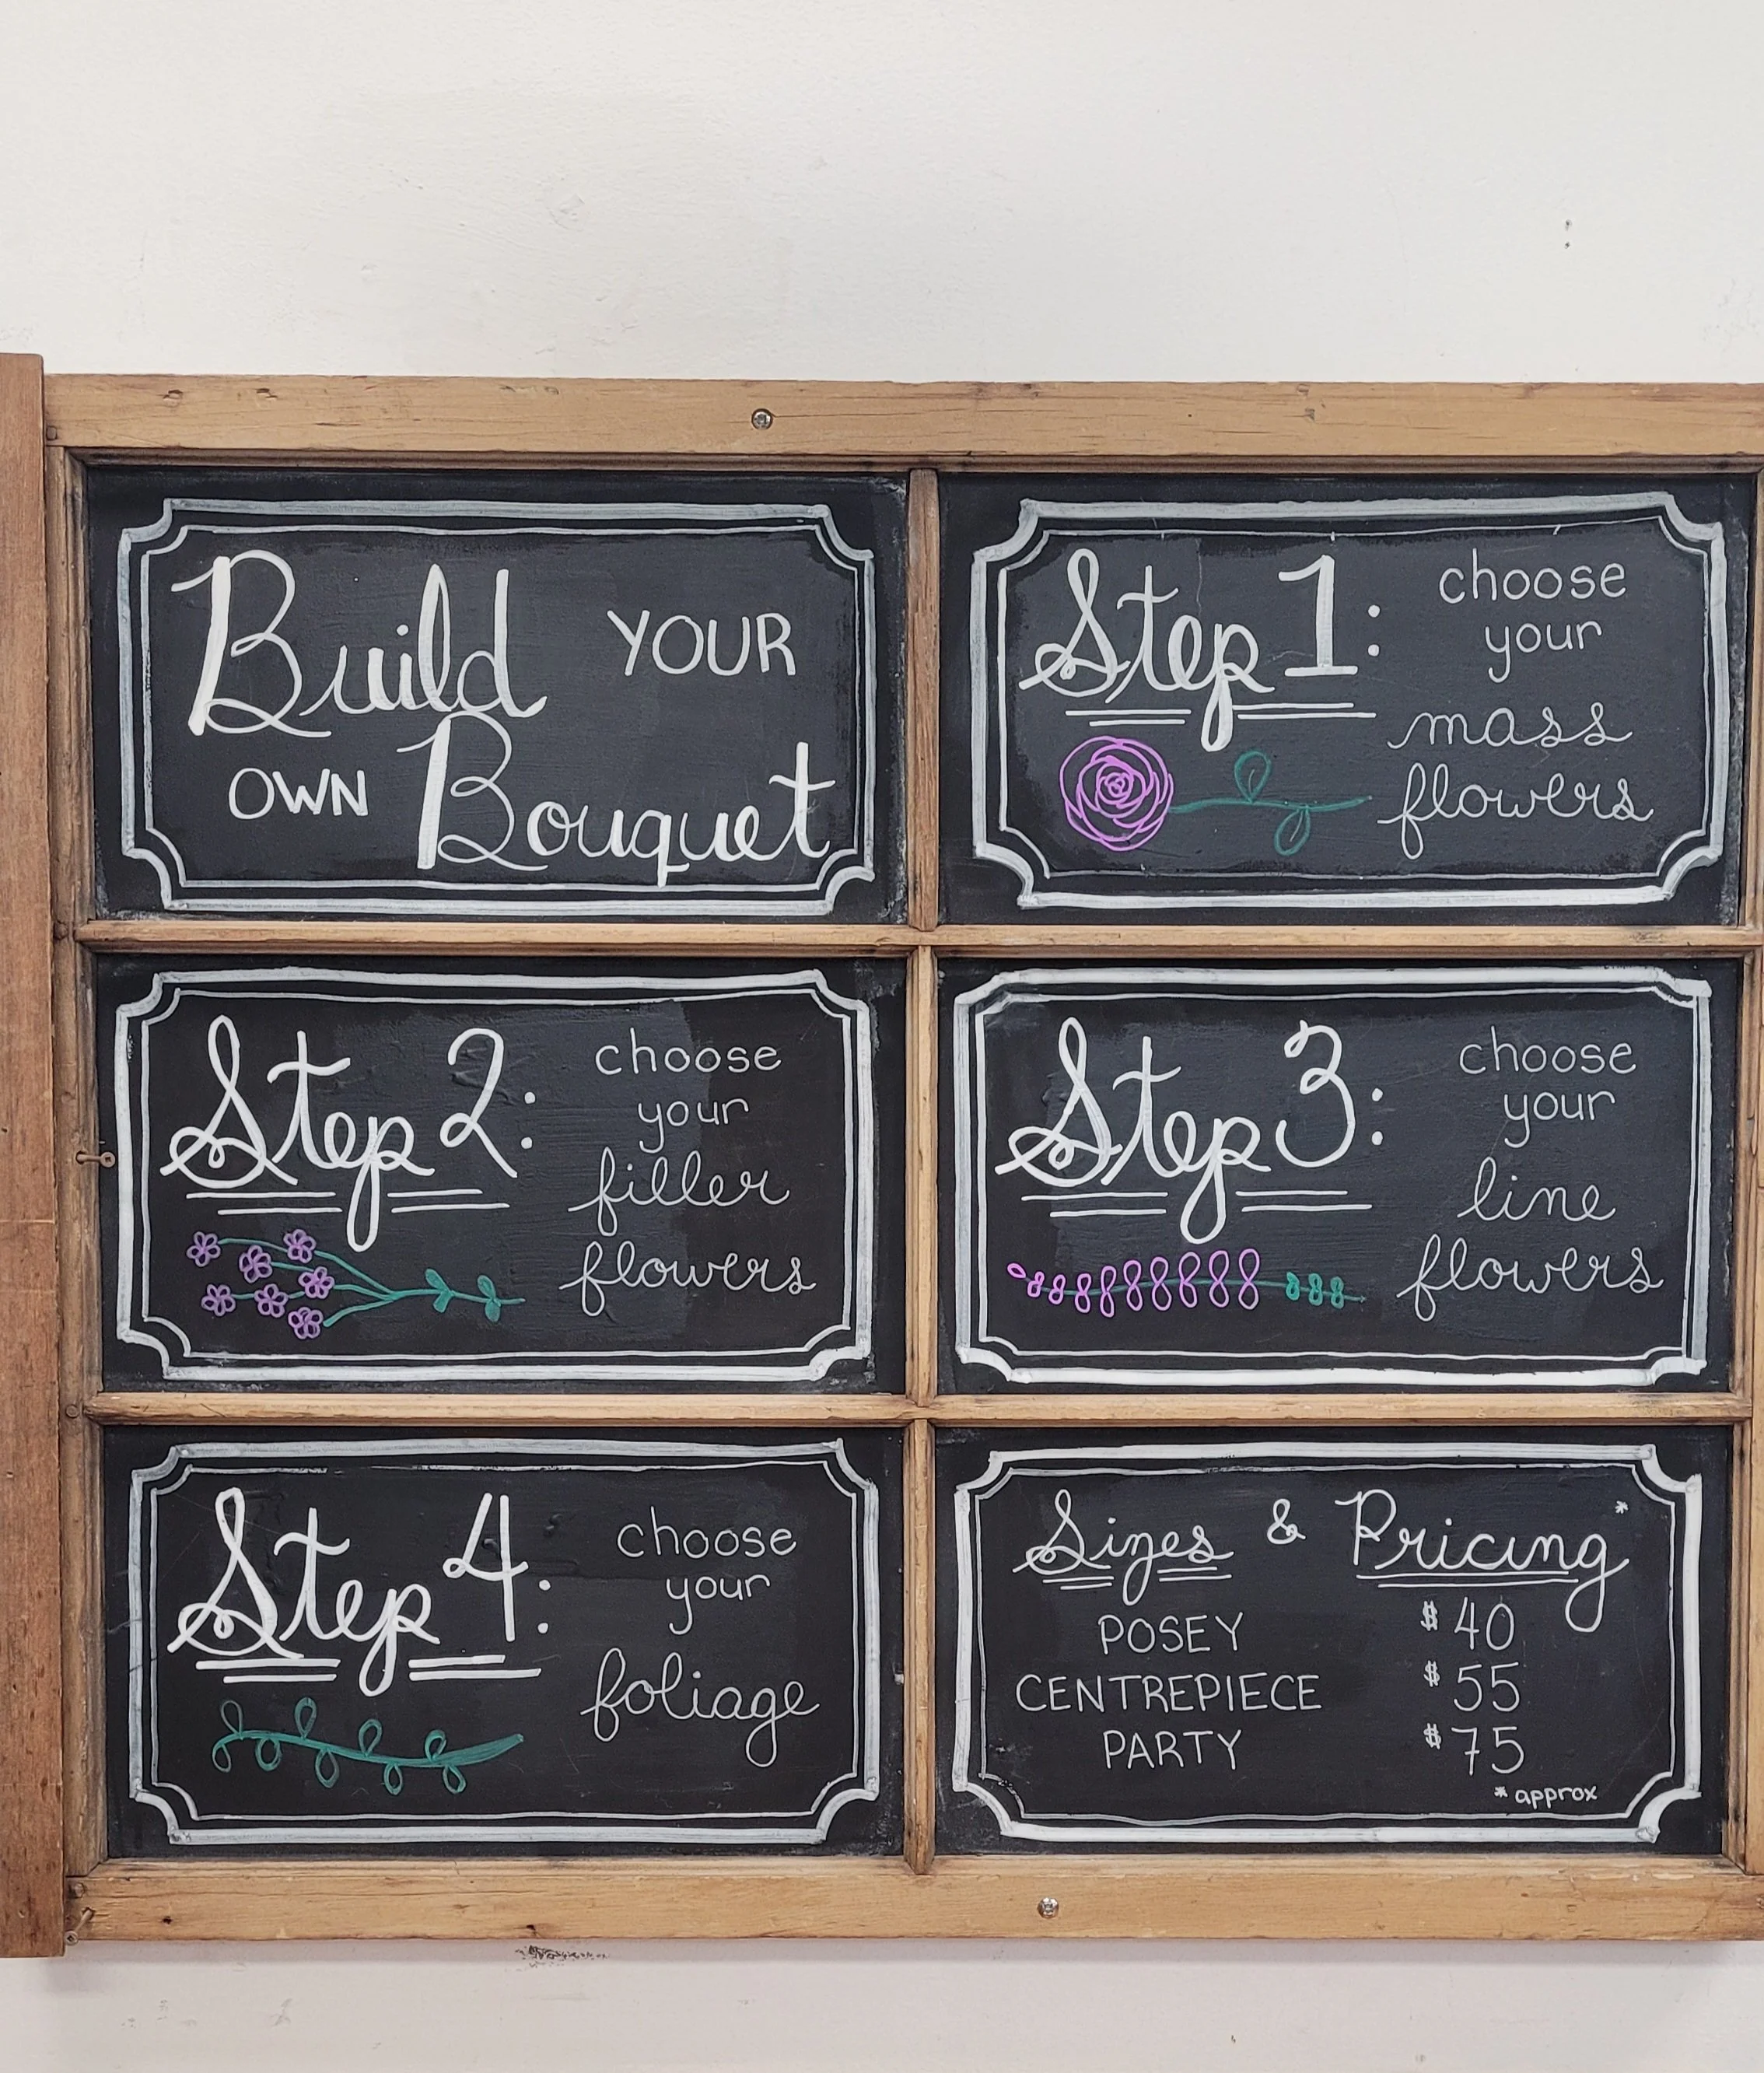 Build YOUR
OWN Bouquet
Step 1: choose
your
mass
flowers
Step 2: choose
your
filler
flowers
Step 3: choose
your
line
flowers
Step 4: choose
your
foliage
Sizes & Pricing*
POSEY $40
CENTREPIECE $55
PARTY $75
* approx